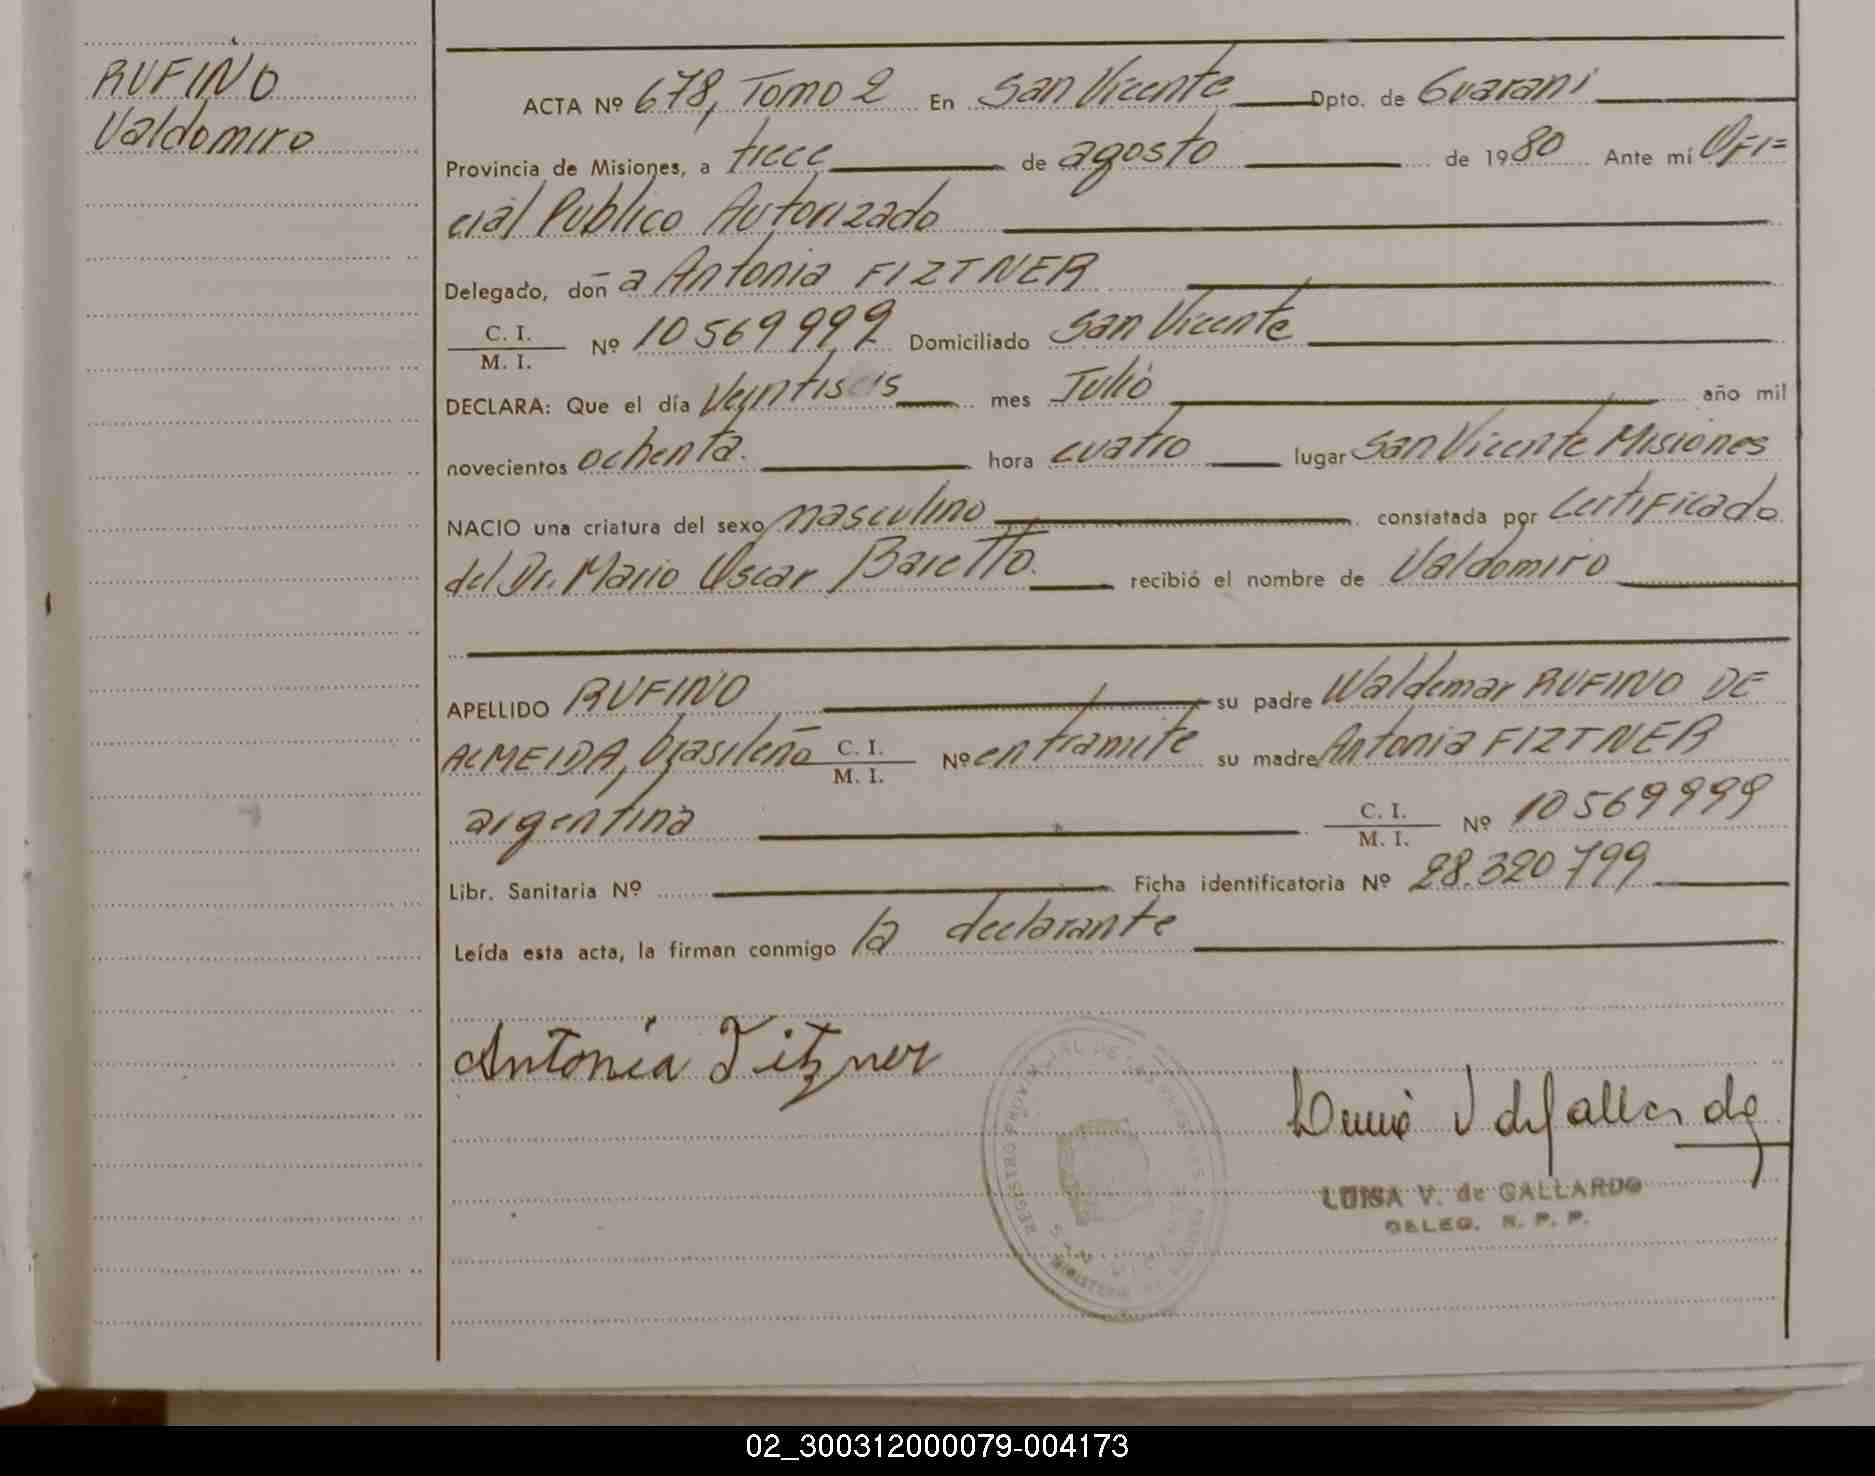 RUFINO
Valdomiro
ACTA Nº 678, Tomo 2 En San Vicente Dpto. de Guarani
Provincia de Misiones, a trece de agosto de 1980 Ante mí Ofi=
cial Publico Autorizado
Delegado, doña Antonia FIZTNER
C. I. / M. I. Nº 10569999 Domiciliado San Vicente
DECLARA: Que el día Veintiseis mes Julio año mil
novecientos ochenta. hora cuatro lugar San Vicente Misiones
NACIO una criatura del sexo masculino constatada por Certificado
del Dr. Mario Oscar Baretto. recibió el nombre de Valdomiro
APELLIDO RUFINO su padre Waldemar RUFINO DE
ALMEIDA, brasileño C. I. / M. I. Nº en tramite su madre Antonia FIZTNER
argentina C. I. / M. I. Nº 10569999
Libr. Sanitaria Nº Ficha identificatoria Nº 28.320799
Leída esta acta, la firman conmigo la declarante
Antonia Fitzner
REGISTRO PROVINCIAL DE LAS PERSONAS
LUISA V. de GALLARDO
DELEG. R. P. P.
02_300312000079-004173